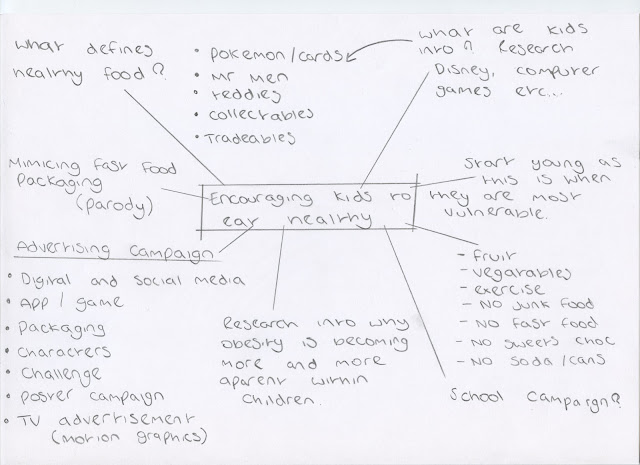 what defines
healthy food?
• Pokemon/cards
• Mr Men
• teddies
• collectables
• Tradeables
what are kids
into? Research
Disney, computer
games etc...
Mimicing fast food
packaging
(parody)
Encouraging kids to
eat healthy
Start young as
this is when
they are most
vulnerable.
Advertising campaign
• Digital and social media
• App / game
• Packaging
• Characters
• Challenge
• poster campaign
• TV advertisement
(motion graphics)
Research into why
obesity is becoming
more and more
aparent within
children.
- fruit
- vegatables
- exercise
- NO junk food
- NO fast food
- NO sweets choc
- NO soda/cans
School campaign?